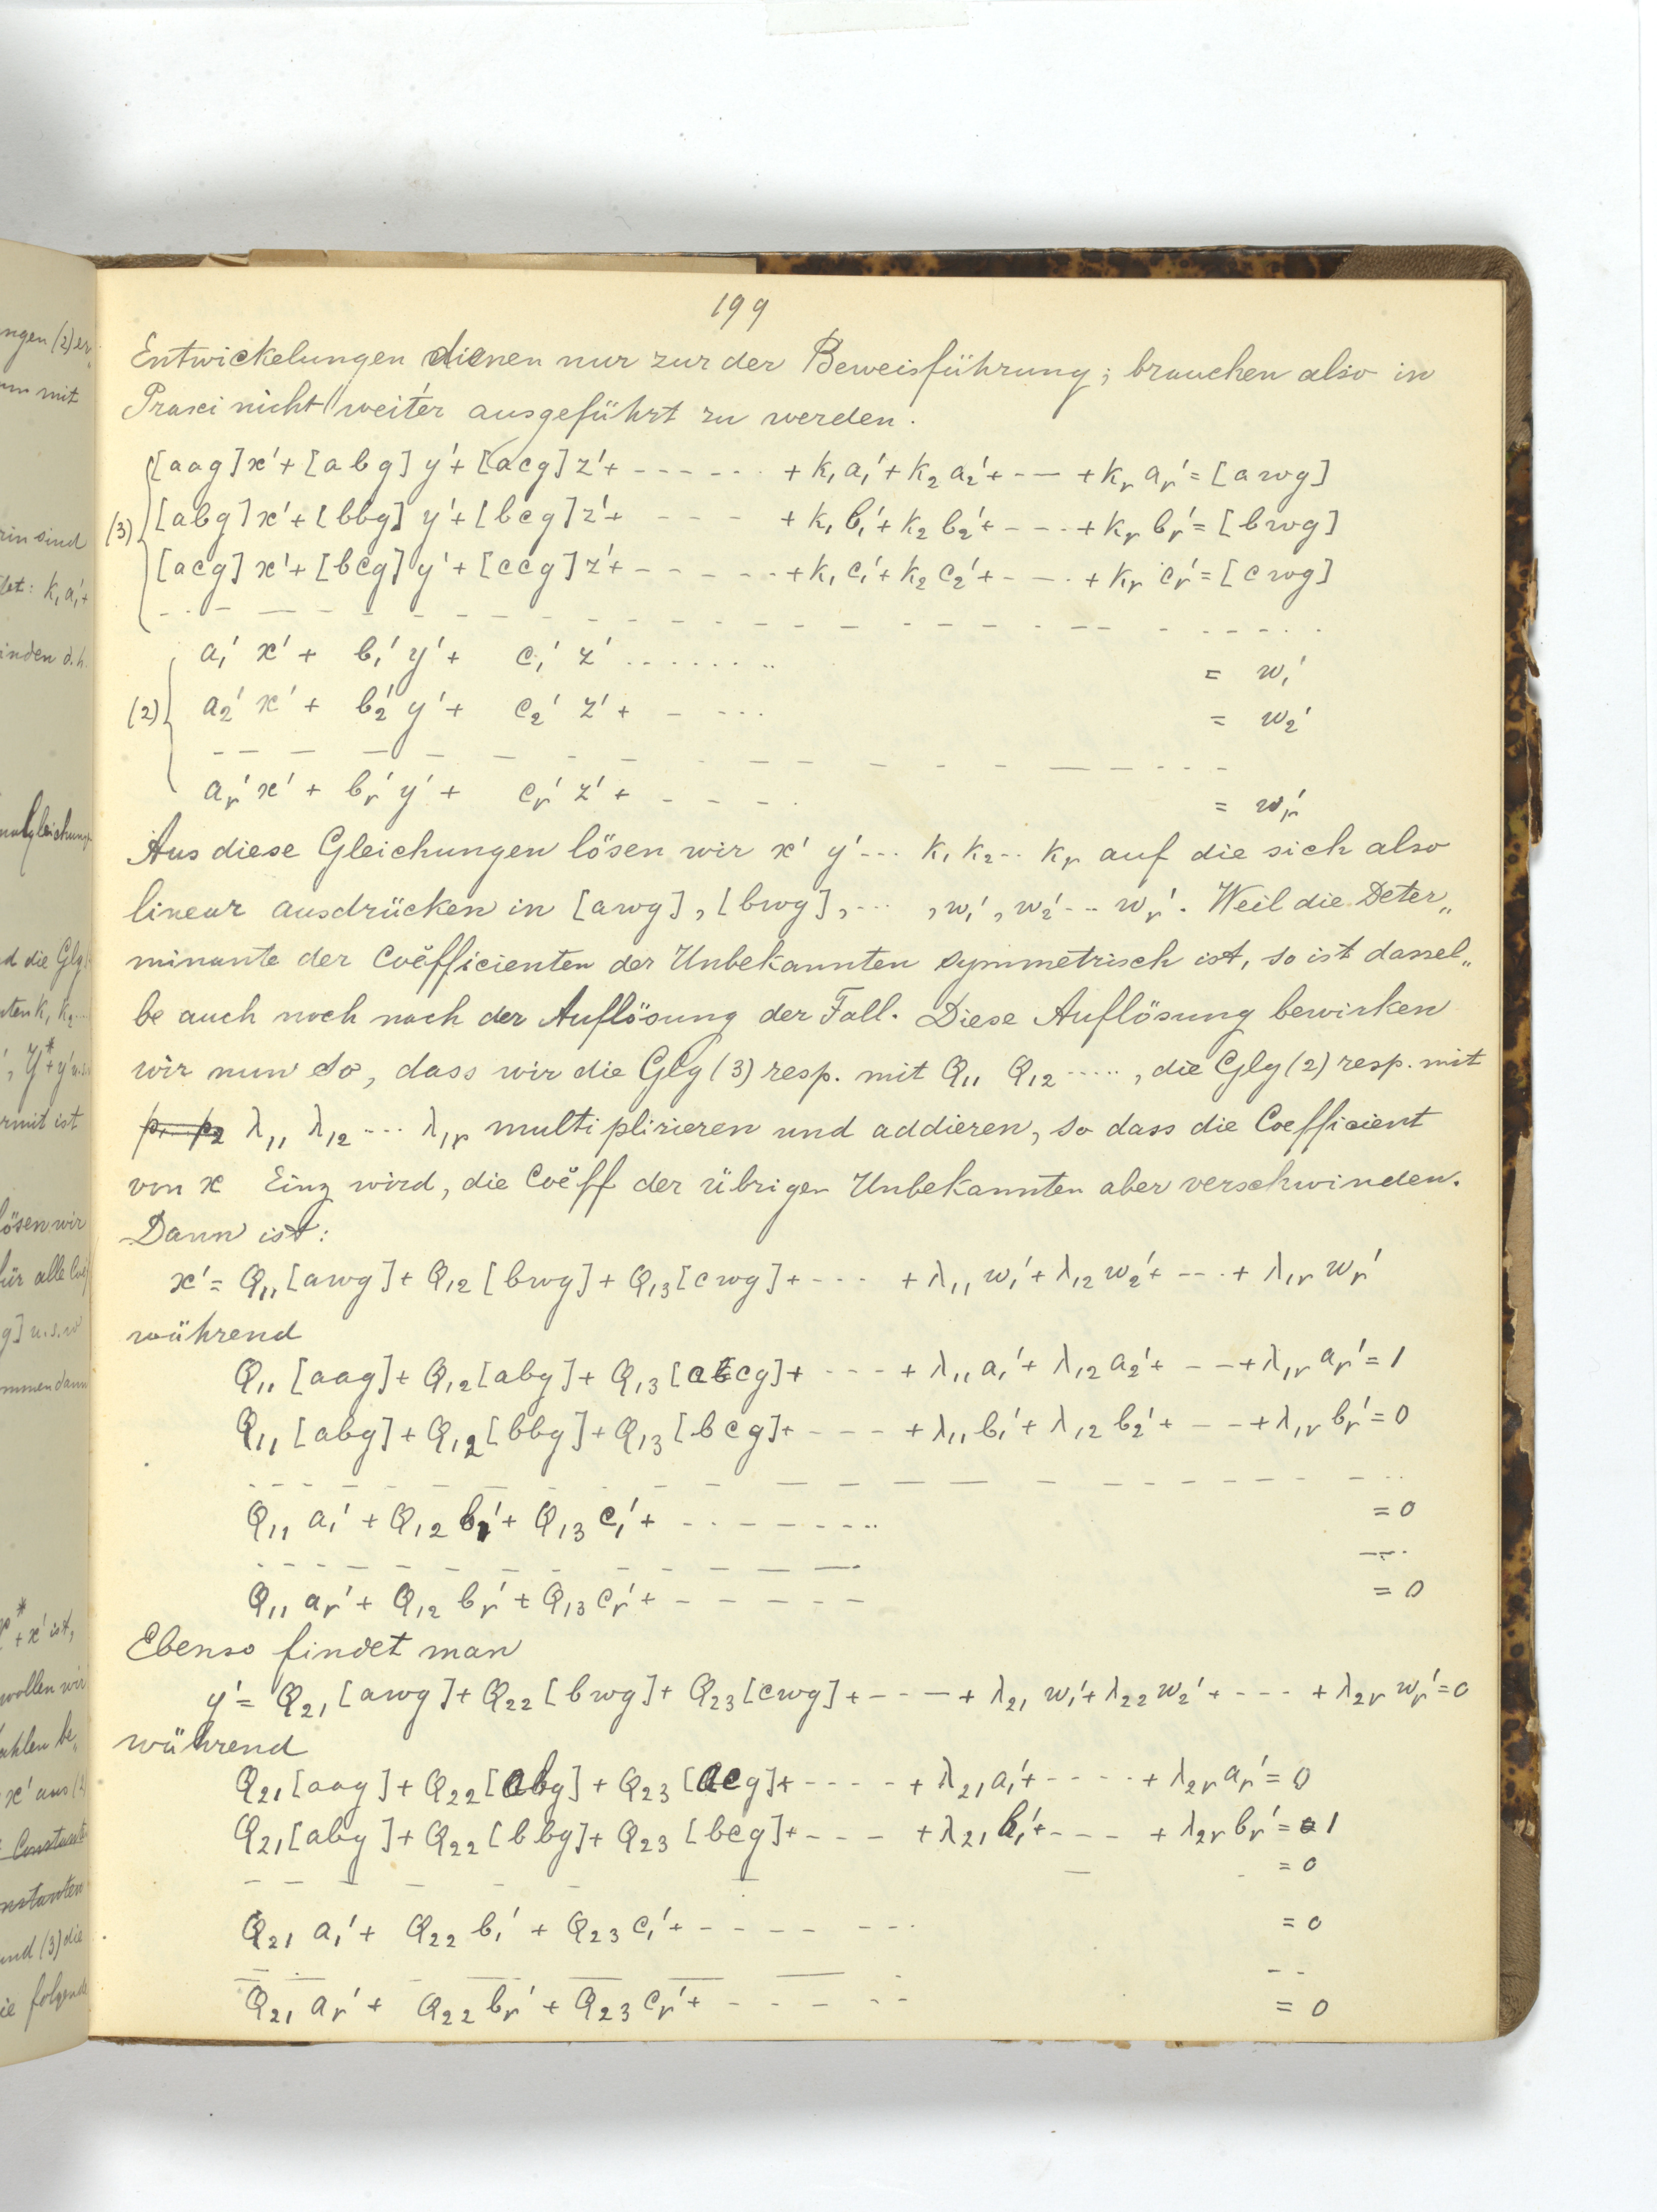 199
Entwickelungen dienen nur zur der Beweisführung; brauchen also in
Praxi nicht weiter ausgeführt zu werden.
[aag]x'+[abg]y'+[acg]z'+ - - - - - - +k₁a₁'+k₂a₂'+ - - +kᵣaᵣ'=[awg]
(3) [abg]x'+[bbg]y'+[bcg]z'+ - - - - +k₁b₁'+k₂b₂'+ - - - +kᵣbᵣ'=[bwg]
[acg]x'+[bcg]y'+[ccg]z'+ - - - - - +k₁c₁'+k₂c₂'+ - - - +kᵣcᵣ'=[cwg]
- - - - - - - - - - - - - - - - - - - -
a₁'x'+ b₁'y'+ c₁'z' ........ = w₁'
(2) a₂'x'+ b₂'y'+ c₂'z'+ - - - - = w₂'
- - - - - - - - - - - - - - - - - -
aᵣ'x'+ bᵣ'y'+ cᵣ'z'+ - - - - = wᵣ'
Aus diese Gleichungen lösen wir x' y' --- k₁ k₂ -- kᵣ auf die sich also
linear ausdrücken in [awg], [bwg], --- , w₁', w₂' --- wᵣ'. Weil die Deter„
minante der Coëfficienten der Unbekannten symmetrisch ist, so ist dassel„
be auch noch nach der Auflösung der Fall. Diese Auflösung bewirken
wir nun so, dass wir die Glg (3) resp. mit Q₁₁ Q₁₂ ....., die Glg (2) resp. mit
p₁ -- p₂ λ₁₁ λ₁₂ --- λ₁ᵣ multiplizieren und addieren, so dass die Coefficient
von x Einz wird, die Coëff der übrigen Unbekannten aber verschwinden.
Dann ist:
x'= Q₁₁[awg]+ Q₁₂[bwg]+ Q₁₃[cwg]+ - - - - +λ₁₁w₁'+λ₁₂w₂'+ - - - +λ₁ᵣwᵣ'
während
Q₁₁[aag]+ Q₁₂[abg]+ Q₁₃[acg]+ - - - - +λ₁₁a₁'+λ₁₂a₂'+ - - +λ₁ᵣaᵣ'=1
Q₁₁[abg]+ Q₁₂[bbg]+ Q₁₃[bcg]+ - - - - +λ₁₁b₁'+λ₁₂b₂'+ - - +λ₁ᵣbᵣ'=0
- - - - - - - - - - - - - - - - - - - -
Q₁₁a₁'+ Q₁₂b₁'+ Q₁₃c₁'+ - - - - - - - =0
- - - - - - - - - - - - - - -
Q₁₁aᵣ'+ Q₁₂bᵣ'+ Q₁₃cᵣ'+ - - - - - =0
Ebenso findet man
y'= Q₂₁[awg]+ Q₂₂[bwg]+ Q₂₃[cwg]+ - - - +λ₂₁w₁'+λ₂₂w₂'+ - - - +λ₂ᵣwᵣ'=0
während
Q₂₁[aag]+ Q₂₂[abg]+ Q₂₃[acg]+ - - - - +λ₂₁a₁'+ - - - - +λ₂ᵣaᵣ'=0
Q₂₁[abg]+ Q₂₂[bbg]+ Q₂₃[bcg]+ - - - +λ₂₁b₁'+ - - - +λ₂ᵣbᵣ'=1
- - - - - - - - - =0
Q₂₁a₁'+ Q₂₂b₁'+ Q₂₃c₁'+ - - - - - - - =0
- - - - - - - - - - -
Q₂₁aᵣ'+ Q₂₂bᵣ'+ Q₂₃cᵣ'+ - - - - - =0